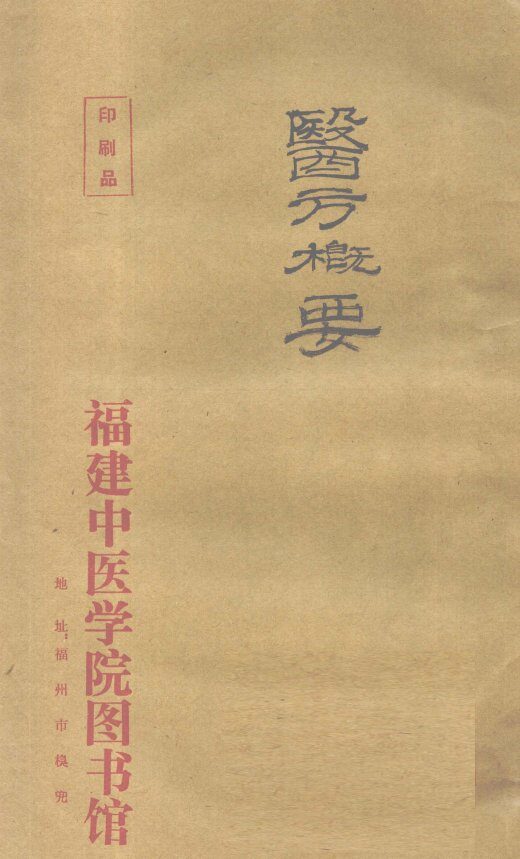 醫方概要
印刷品
福建中医学院图书馆
地址:福州市梘兜